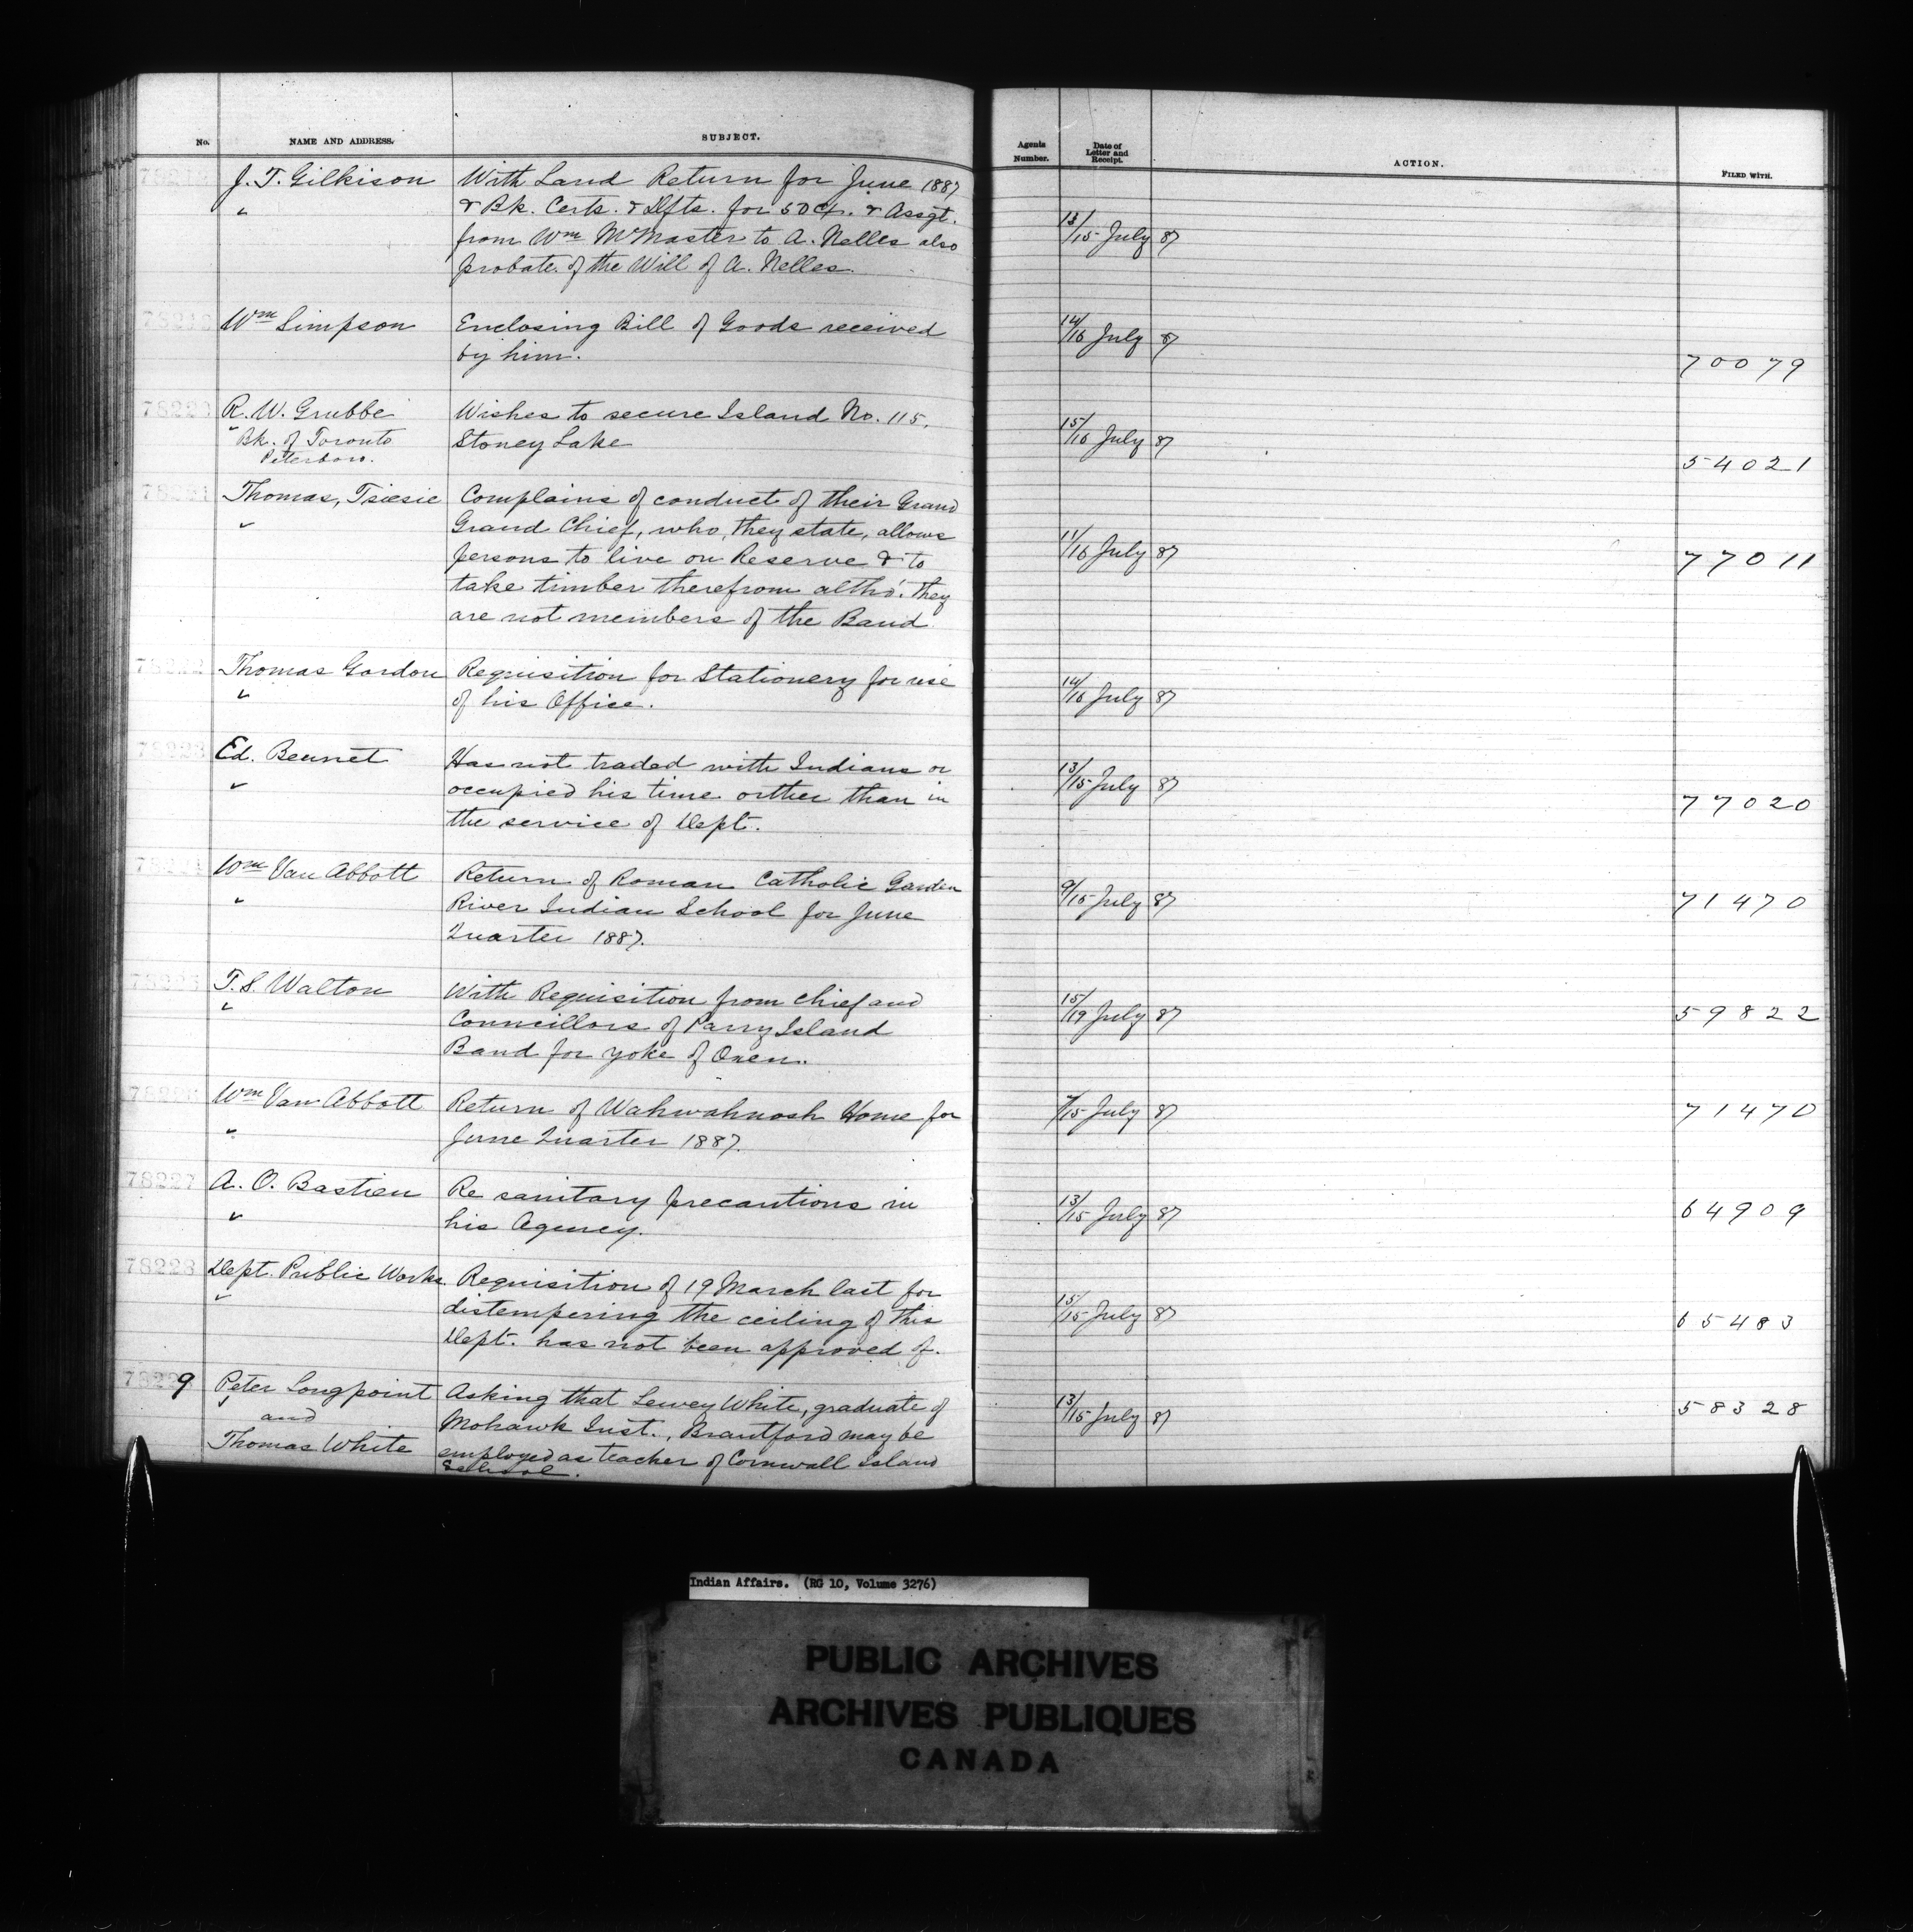 No. NAME AND ADDRESS. SUBJECT. Agents Number. Date of Letter and Receipt. ACTION. FILED WITH.
J. T. Gilkison With Land Return for June 1887
& Bk. Certs. & Dfts. for 50 cts. & Assgt. 13/15 July 87
from Wm McMaster to A. Nelles also
probate of the Will of A. Nelles.
Wm Simpson Enclosing Bill of Goods received 14/16 July 87
by him. 70079
78220 R. W. Grubbe Wishes to secure Island No. 115,
Bk. of Toronto Stoney Lake 15/16 July 87
Peterboro. 54021
78221 Thomas, Tsiesie Complains of conduct of their Grand
Grand Chief, who, they state, allows
persons to live on Reserve & to 11/16 July 87 77011
take timber therefrom altho'. they
are not members of the Band.
78222 Thomas Gordon Requisition for Stationery for use
of his Office. 14/16 July 87
78223 Ed. Bennet Has not traded with Indians or
occupied his time orther than in 13/15 July 87 77020
the service of Dept.
78224 Wm Van Abbott Return of Roman Catholic Garden
River Indian School for June 9/15 July 87 71470
Quarter 1887.
78225 T. S. Walton With Requisition from Chief and
Councillors of Parry Island 15/19 July 87 59822
Band for yoke of Oxen.
Wm Van Abbott Return of Wahwahnosh Home for 7/15 July 87 71470
June Quarter 1887.
78227 A. O. Bastien Re sanitary precautions in
his Agency. 13/15 July 87 64909
78228 Dept. Public Works. Requisition of 19 March last for
distempering the ceiling of this 15/15 July 87 65483
Dept. has not been approved of.
78229 Peter Longpoint Asking that Lewey White, graduate of
and Mohawk Inst., Brantford may be 13/15 July 87 58328
Thomas White employed as teacher of Cornwall Island
School.
Indian Affairs. (RG 10, Volume 3276)
PUBLIC ARCHIVES
ARCHIVES PUBLIQUES
CANADA